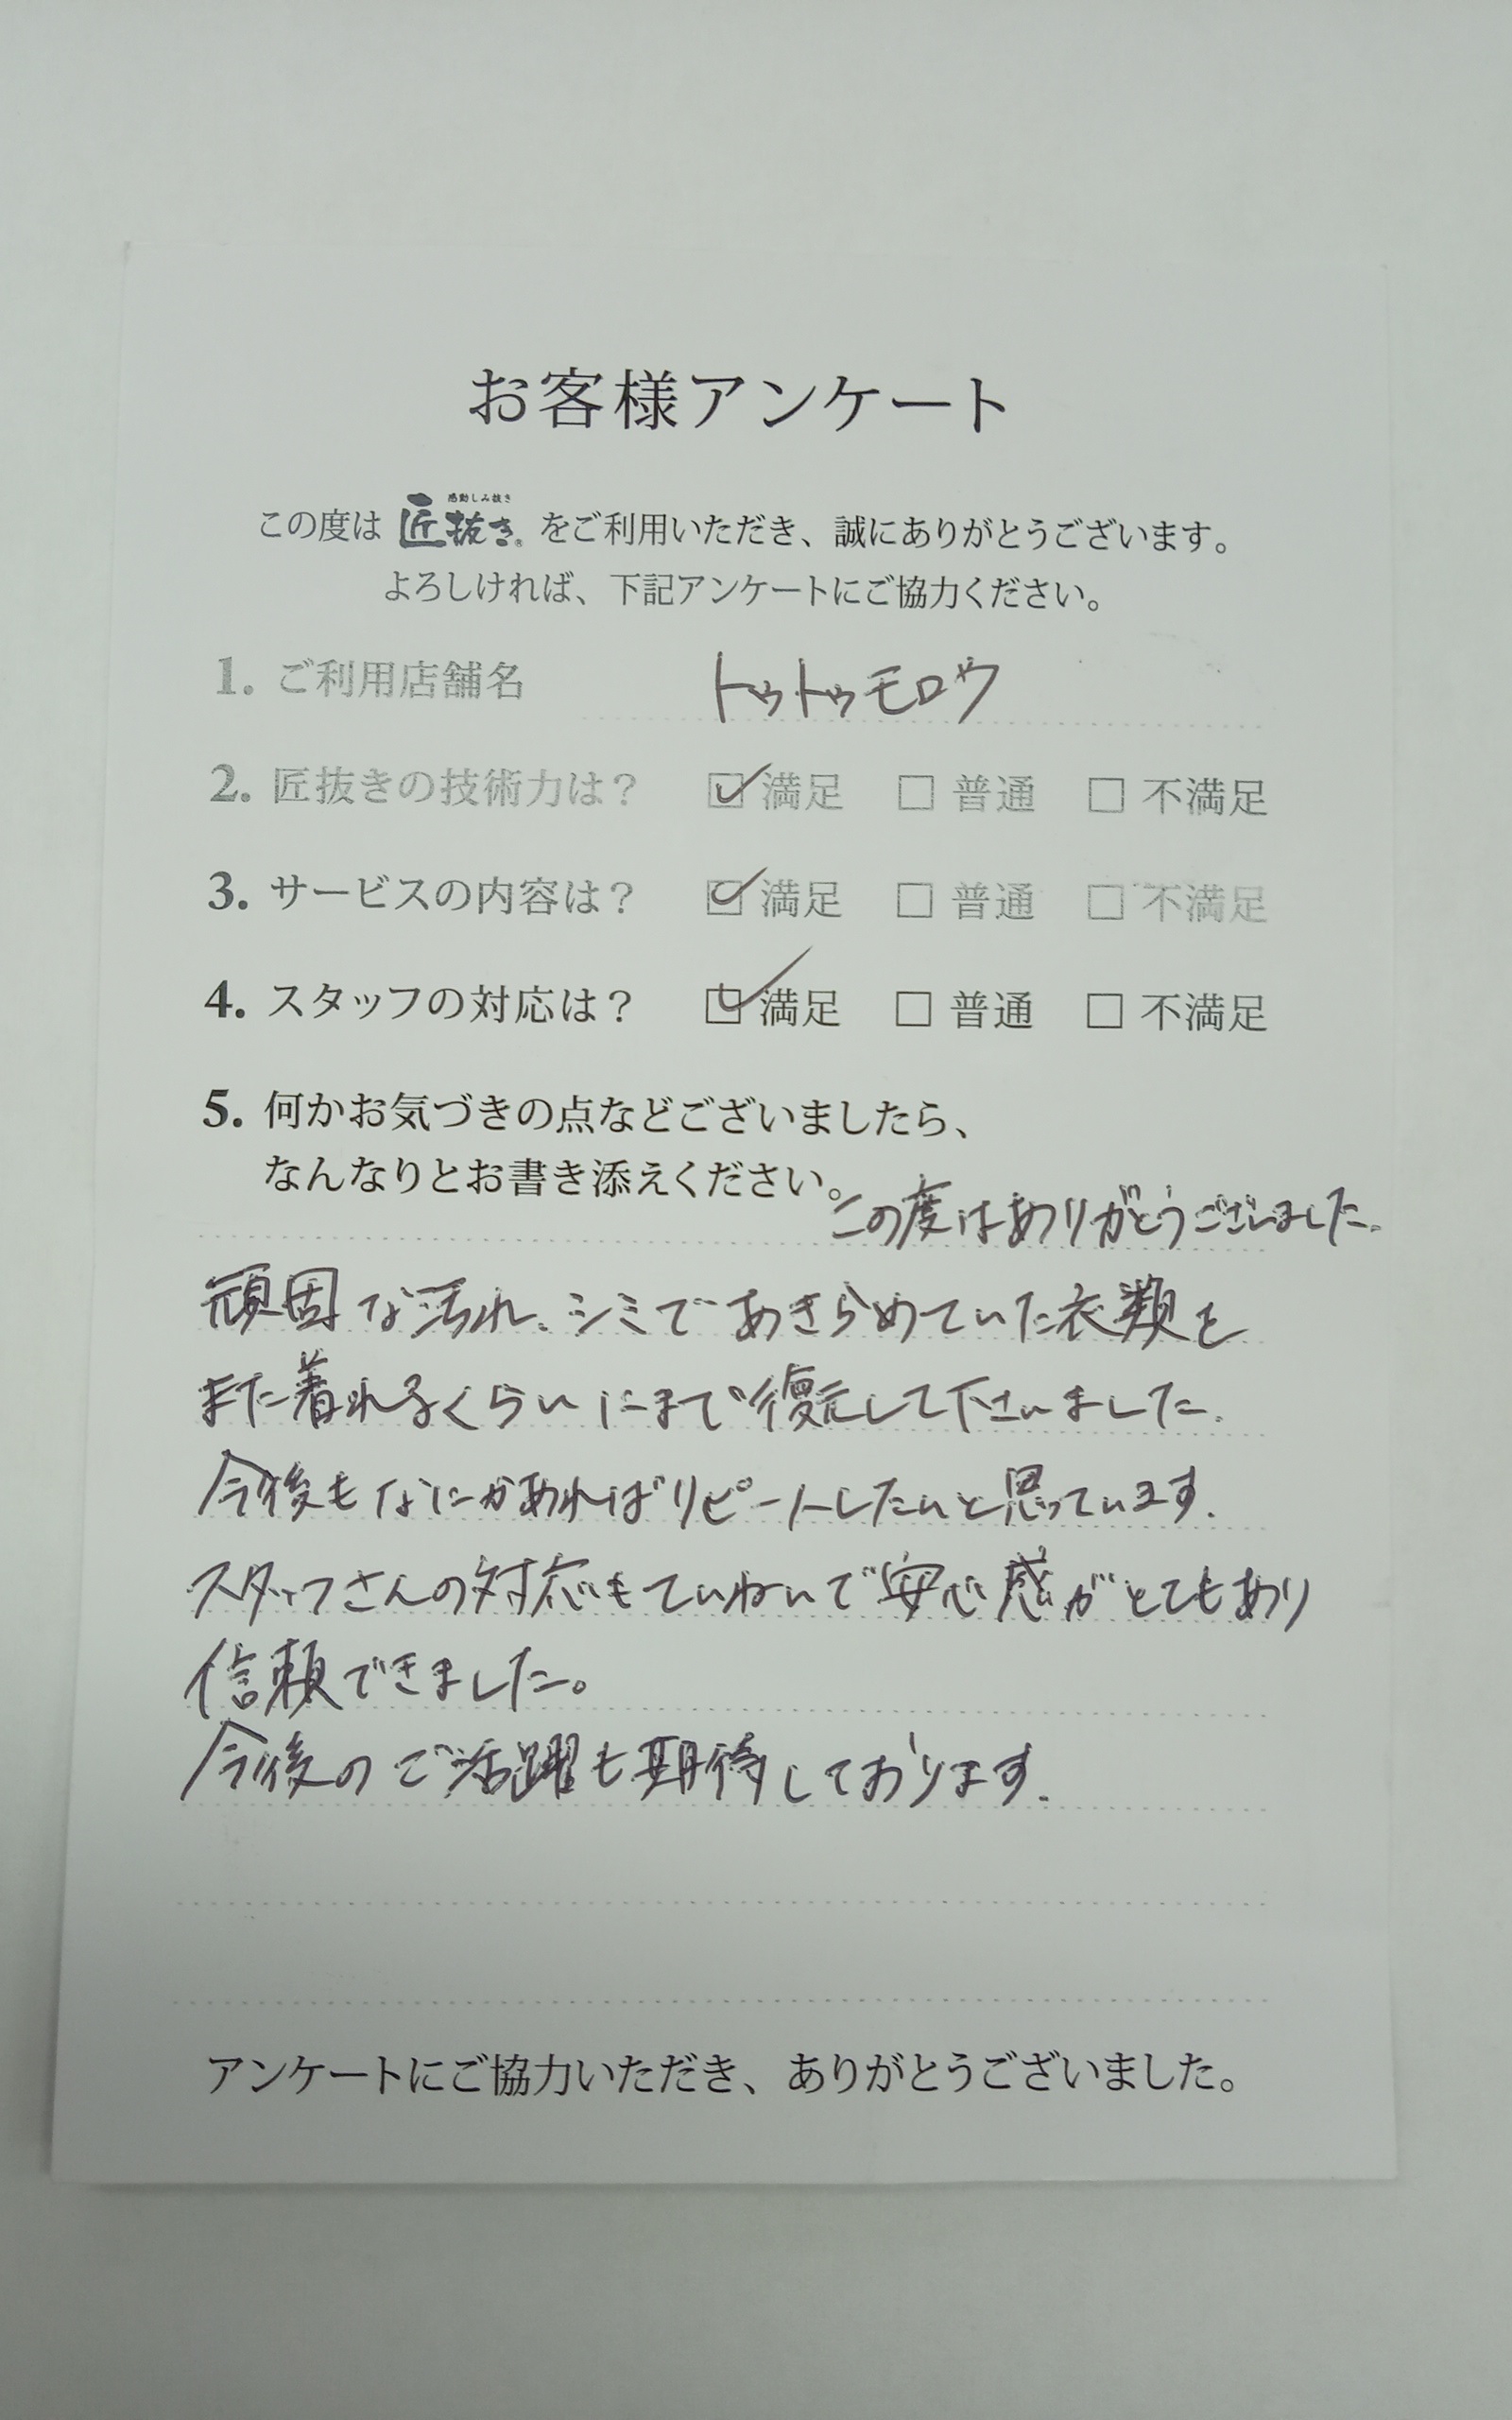 お客様アンケート
感動しみ抜き
この度は 匠抜き® をご利用いただき、誠にありがとうございます。
よろしければ、下記アンケートにご協力ください。
1. ご利用店舗名 トゥトゥモロウ
2. 匠抜きの技術力は? ☑ 満足 □ 普通 □ 不満足
3. サービスの内容は? ☑ 満足 □ 普通 □ 不満足
4. スタッフの対応は? ☑ 満足 □ 普通 □ 不満足
5. 何かお気づきの点などございましたら、
なんなりとお書き添えください。
この度はありがとうございました。
頑固な汚れ、シミであきらめていた衣類を
また着れるくらいにまで復元して下さいました。
今後もなにかあればリピートしたいと思っています。
スタッフさんの対応もていねいで安心感がとてもあり
信頼できました。
今後のご活躍も期待しております。
アンケートにご協力いただき、ありがとうございました。